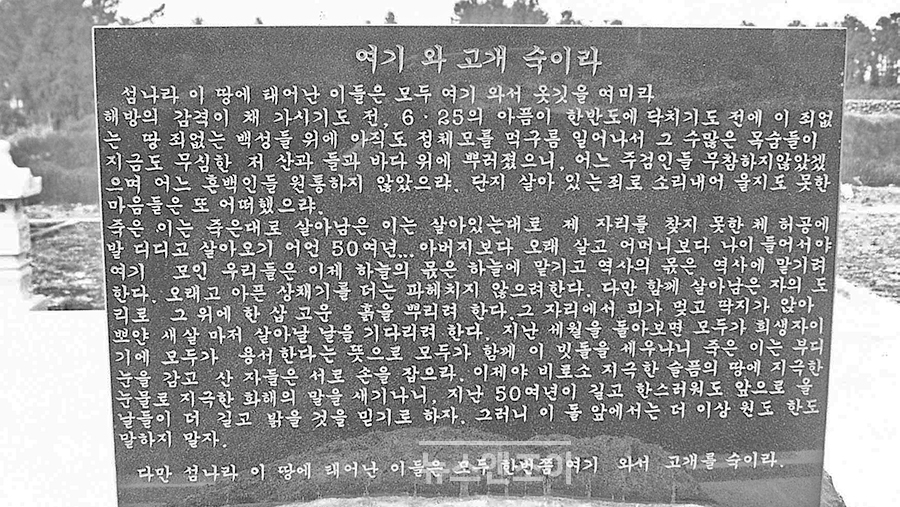 여기 와 고개 숙이라
섬나라 이 땅에 태어난 이들은 모두 여기 와서 옷깃을 여미라
해방의 감격이 채 가시기도 전, 6·25의 아픔이 한반도에 닥치기도 전에 이 죄없
는 땅 죄없는 백성들 위에 아직도 정체모를 먹구름 일어나서 그 수많은 목숨들이
지금도 무심한 저 산과 들과 바다 위에 뿌려졌으니, 어느 주검인들 무참하지않았겠
으며 어느 혼백인들 원통하지 않았으랴. 단지 살아 있는죄로 소리내어 울지도 못한
마음들은 또 어떠했으랴.
죽은 이는 죽은대로 살아남은 이는 살아있는대로 제 자리를 찾지 못한 체 허공에
발 디디고 살아오기 어언 50여년... 아버지보다 오래 살고 어머니보다 나이 들어서야
여기 모인 우리들은 이제 하늘의 몫은 하늘에 맡기고 역사의 몫은 역사에 맡기려
한다. 오래고 아픈 상채기를 더는 파헤치지 않으려한다. 다만 함께 살아남은 자의 도
리로 그 위에 한 삽 고운 흙을 뿌리려 한다.그 자리에서 피가 멎고 딱지가 앉아
뽀얀 새살 마저 살아날 날을 기다리려 한다. 지난 세월을 돌아보면 모두가 희생자이
기에 모두가 용서한다는 뜻으로 모두가 함께 이 빗돌을 세우나니 죽은 이는 부디
눈을 감고 산 자들은 서로 손을 잡으라. 이제야 비로소 지극한 슬픔의 땅에 지극한
눈물로 지극한 화해의 말을 새기나니, 지난 50여년이 길고 한스러워도 앞으로 올
날들이 더 길고 밝을 것을 믿기로 하자. 그러니 이 돌 앞에서는 더 이상 원도 한도
말하지 말자.
다만 섬나라 이 땅에 태어난 이들은 모두 한번쯤 여기 와서 고개를 숙이라.
뉴스앤조이